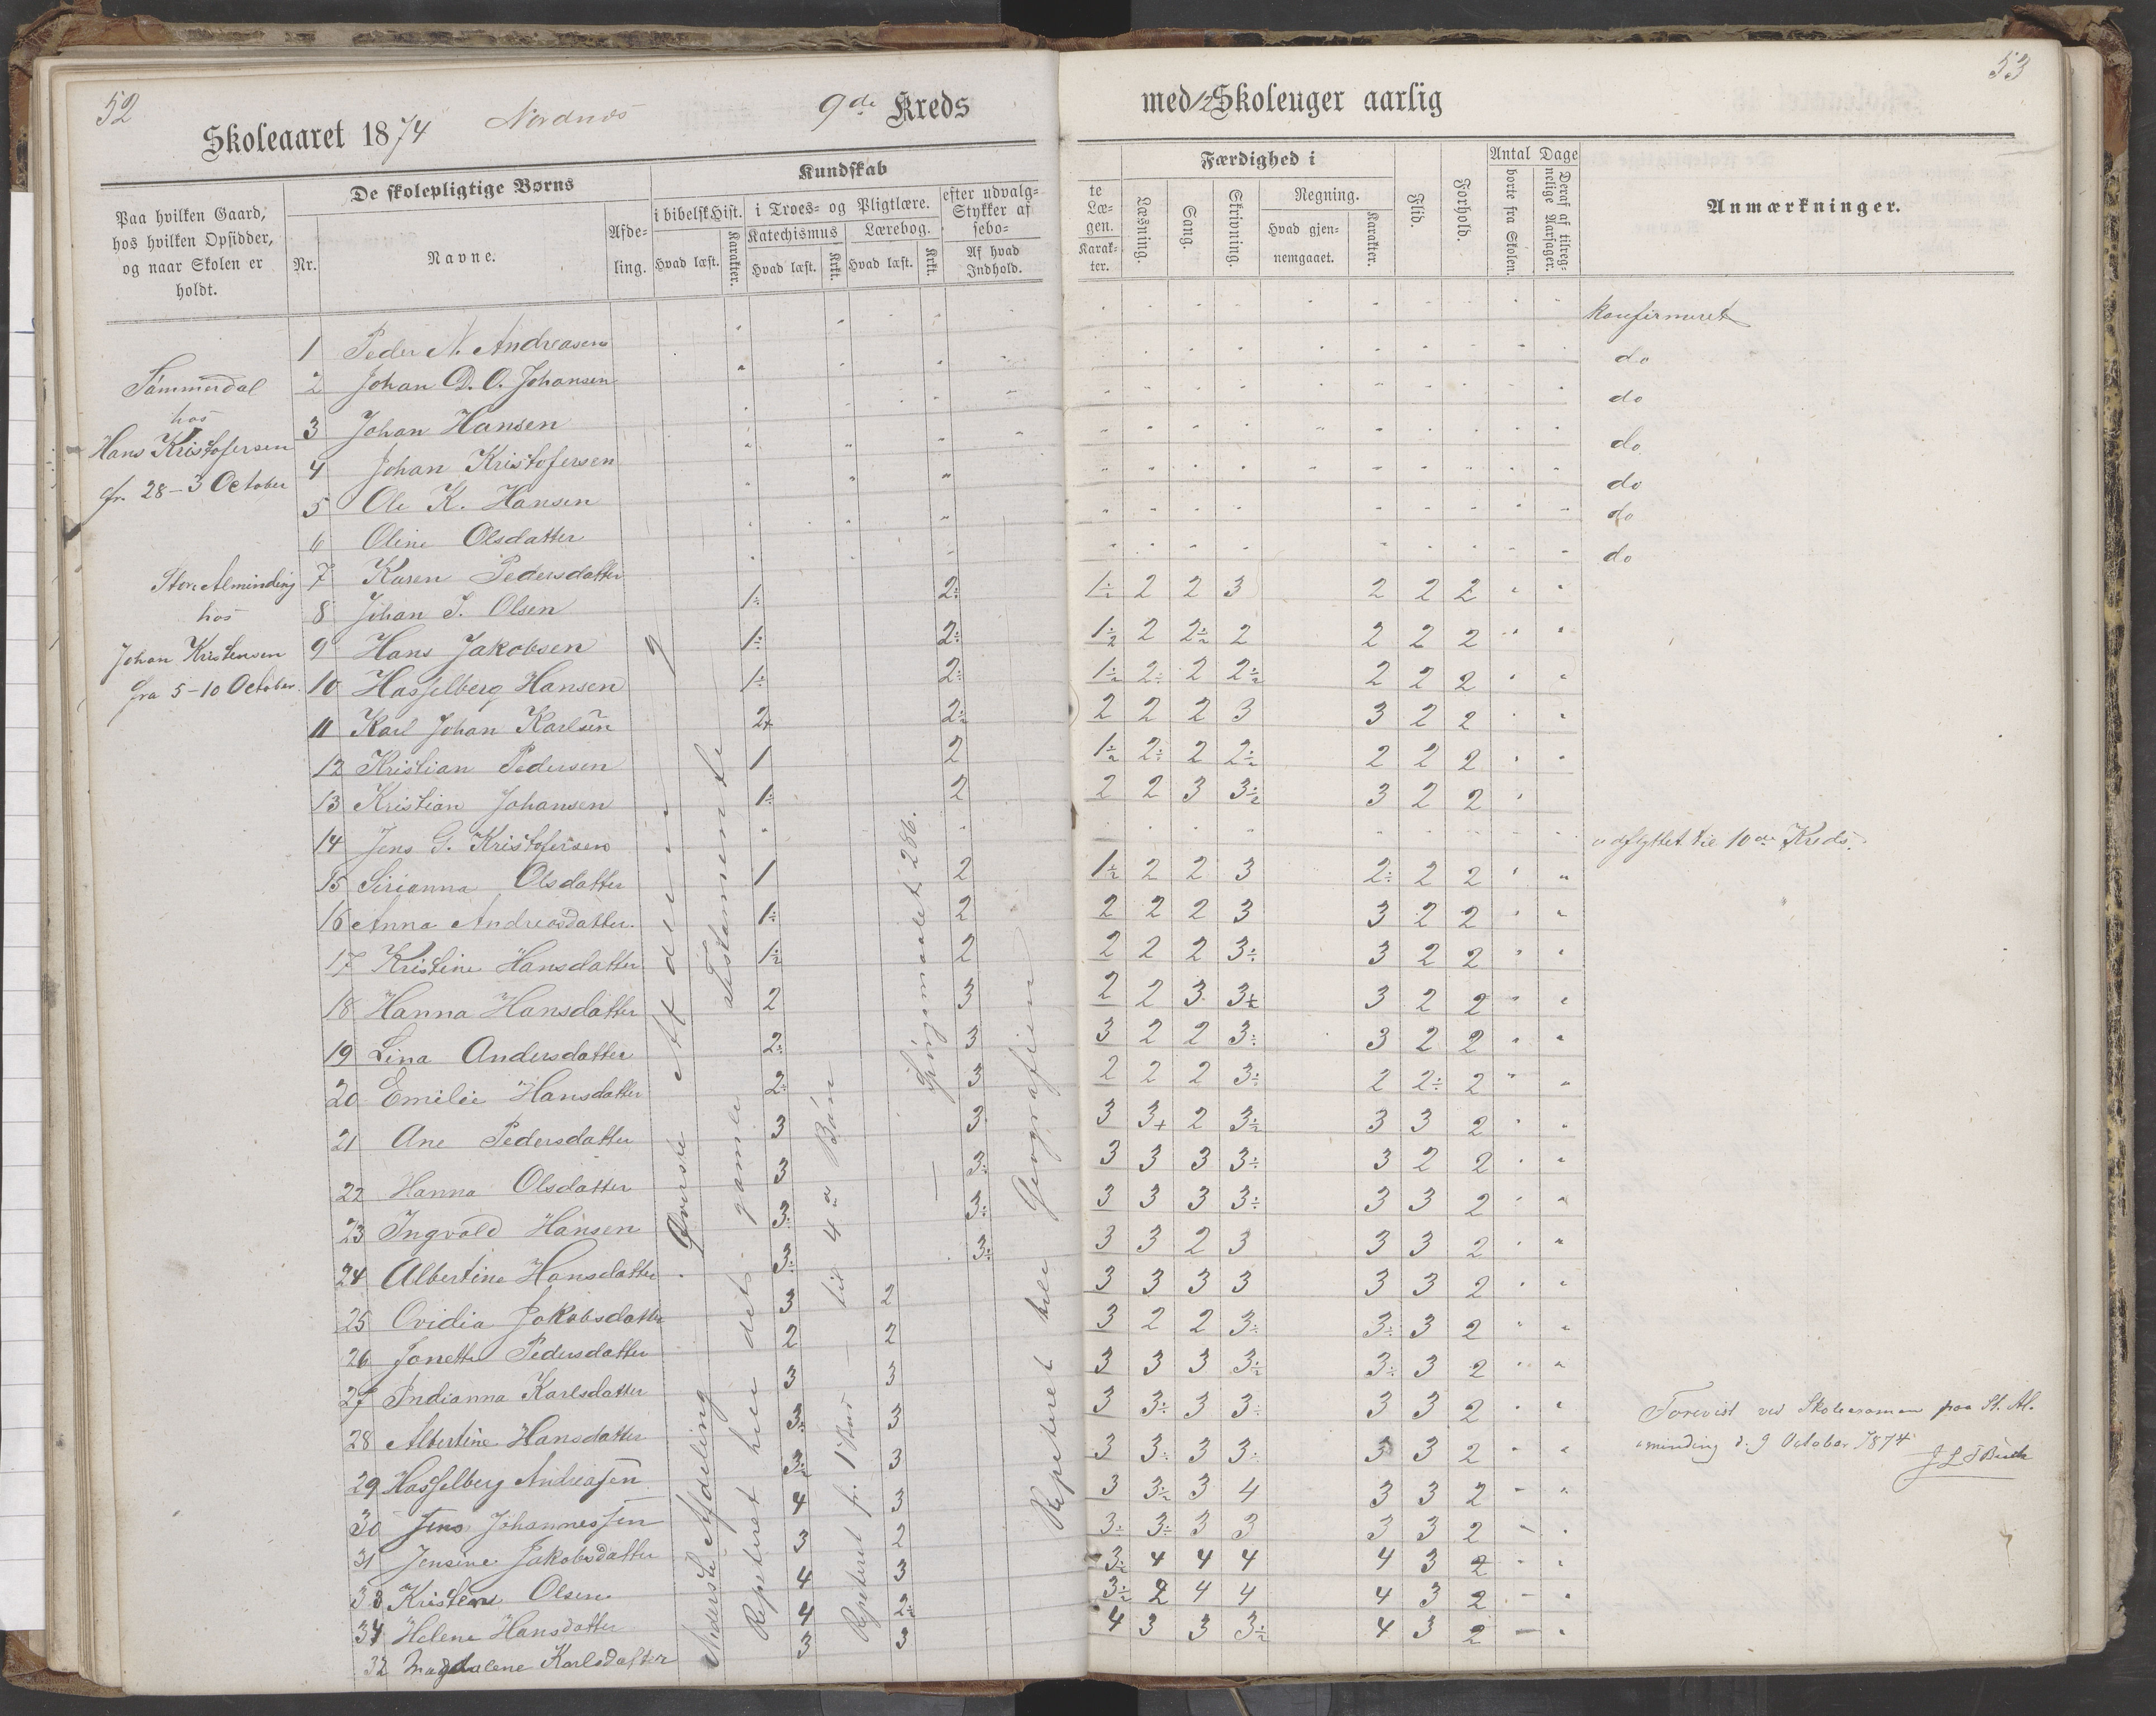 52
Skoleaaret 1874 Nordnæs 9de Kreds
Paa hvilken Gaard, hos hvilken Opsidder, og naar Skolen er holdt.
De skolepligtige Børns
Nr.
Navne.
Afde-ling.
Kundskab
i bibelsk Hist.
Hvad læst.
Karakter.
i Troes- og Pligtlære.
Katechismus
Hvad læst.
Krkt.
Lærebog.
Hvad læst.
Krkt.
efter udvalg-
Stykker af
sebo-
Af hvad Indhold.
Sommerdal
hos
Hans Kristofersen
fr. 28-3 October
Store Alminding
hos
Johan Kristensen
fra 5-10 October.
1 Peder N. Andreasen
2 Johan D. O. Johansen
3 Johan Hansen
4 Johan Kristofersen
5 Ole K. Hansen
6 Oline Olsdatter
7 Karen Pedersdatter
8 Johan J. Olsen 1÷ 2÷
9 Hans Jakobsen 1÷ 2÷
10 Hasselberg Hansen 1÷ 2÷
11 Karl Johan Karlsen 2+ 2÷
12 Kristian Pedersen 1 2
13 Kristian Johansen 1÷ 2
14 Jens G. Kristofersen
15 Sirianna Olsdatter 1 2
16 Anna Andreasdatter 1÷ 2
17 Kristine Hansdatter 1÷ 2
18 Hanna Hansdatter 2 3
19 Lina Andersdatter 2÷ 3
20 Emilie Hansdatter 2÷ 3
21 Ane Pedersdatter 3 3
22 Hanna Olsdatter 3 3÷
23 Ingvald Hansen 3÷ 3÷
24 Albertine Hansdatter 3÷ 3÷
25 Ovidia Jakobsdatter 3 2
26 Jonette Pedersdatter 2 2
27 Indianna Karlsdatter 3 3
28 Albertine Hansdatter 3÷ 3
29 Hasselberg Andreassen 3÷ 3
30 Jens Johannessen 4 3
31 Jensine Jakobsdatter 3 2
33 Kristine Olsen 4 3
34 Helene Hansdatter 4 2÷
32 Magdalene Karlsdatter 3 3
Øverste Afdeling
Nederste Afdeling
Repeteret hele det gamle Testamente
Repeteret fr. 1 til 4a Bøn
Spørgsmaalet 286.
Repeteret hele Geografien
53
med 12 Skoleuger aarlig
te Læ-gen.
Karak-ter.
Færdighed i
Læsning.
Sang.
Skrivning.
Regning.
Hvad gjen-nemgaaet.
Karakter.
Flid.
Forhold.
Antal Dage
borte fra Skolen.
Deraf af tilreg-nelige Aarsager.
Anmærkninger.
konfirmeret
do
do
do
do
do
do
1÷ 2 2 3 2 2 2
1÷ 2 2÷ 2 2 2 2
1÷ 2÷ 2 2÷ 2 2 2
2 2 2 3 3 2 2
1÷ 2÷ 2 2÷ 2 2 2
2 2 3 3÷ 3 2 2
udflyttet til 10de Kreds.
1÷ 2 2 3 2÷ 2 2
2 2 2 3 3 2 2
2 2 2 3÷ 3 2 2
2 2 3 3+ 3 2 2
3 2 2 3÷ 3 2 2
2 2 2 3÷ 2 2÷ 2
3 3+ 2 3÷ 3 3 2
3 3 3 3÷ 3 2 2
3 3 3 3÷ 3 3 2
3 3 2 3 3 3 2
3 3 3 3 3 3 2
3 2 2 3÷ 3÷ 3 2
3 3 3 3÷ 3÷ 3 2
3 3÷ 3 3÷ 3 3 2
3 3÷ 3 3÷ 3 3 2
3 3÷ 3 4 3 3 2
3÷ 3÷ 3 3 3 3 2
3÷ 4 4 4 4 3 2
3÷ 2 4 4 4 3 2
4 3 3 3÷ 4 3 2
Forevist ved Skoleexamen paa St. Al-
minding d. 9 October 1874